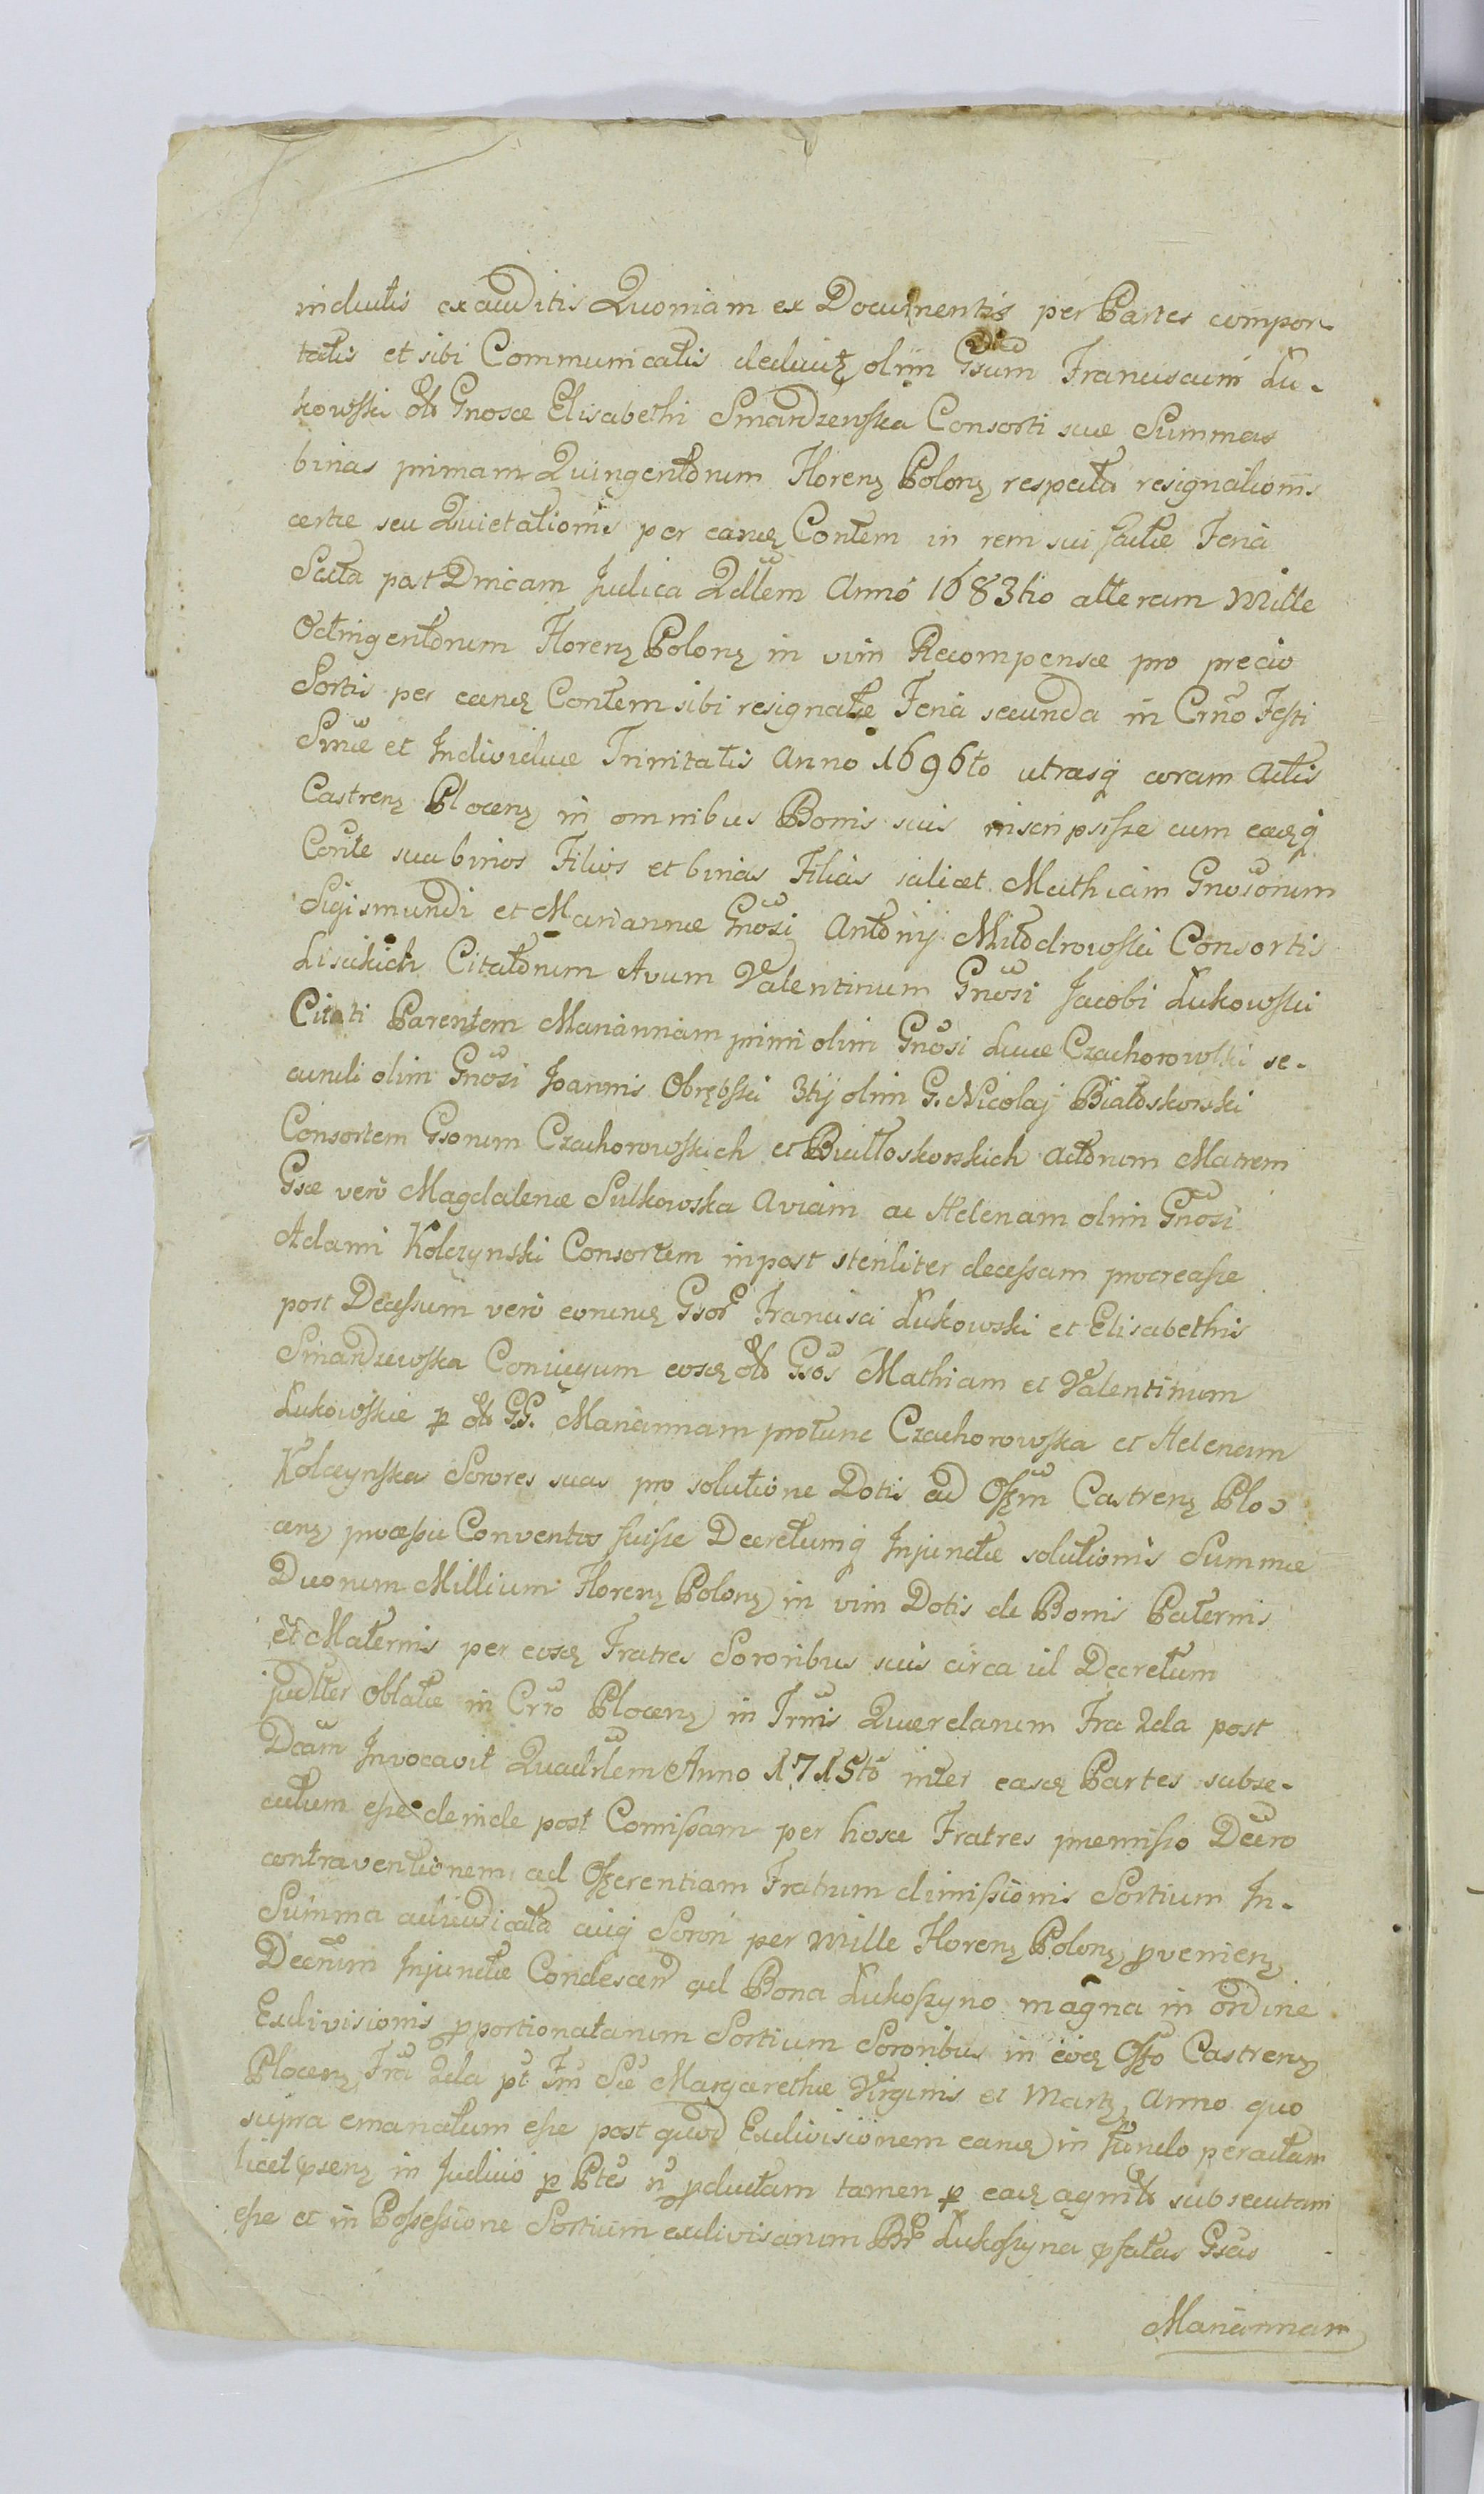 inductis exauditis Quoniam ex Documentis per Partes compor-
tatis et sibi Communicatis deducitz olim Gsum Franciscum Lu-
kowski olb Gnosæ Elisabethi Smardzewska Consorti suæ Summas
binas primam Quingentorum Florenz Polonz respectu resignationis
certæ seu Quietationis per eandz Contem in rem sui factæ Feria
Sexta post Dnicam Judica Qdllem Anno 1683tio alteram Mille
Octingentorum Florenz Polonz in vim Recompensæ pro precio
Sortis per eandz Contem sibi resignatæ Feria secunda in Crno Festi
Smæ et Individuæ Trinitatis Anno 1696to utrasq coram Actis
Castrenz Plocenz in omnibus Bonis suis inscripsisse cum eadzq
Conte sua binos Filios et binas Filias scilicet Mathiam Gnosorum
Sigismundi et Mariannæ Gnosi Antonij Modrowski Consortis
Lisickich Citatorum Avum Valentinum Gnosi Jacobi Lukowski
Citati Parentem Mariannam primi olim Gnosi Lucæ Czachorowski se-
cundi olim Gnosi Joannis Obrębski 3tij olim G. Nicolaj Białoskorski
Consortem Gsorum Czachorowskich et Białłoskorskich Actorum Matrem
Gsæ vero Magdalenæ Sulkowska Aviam ac Helenam olim Gnosi
Adami Kolczynski Consortem inpost steriliter decessam procreasse
post Decessum vero eorundz Gsor Francisci Lukowski et Elisabethis
Smardzewska Conjugum eosdz olb Gsos Mathiam et Valentinum
Lukowskie p olb GG. Mariannam protunc Czachorowska et Helenam
Kolczynska Sorores suas pro solutione Dotis ad Offm Castrenz Plo-
cenz processu Conventos fuisse Decretumq Injunctæ solutionis Summæ
Duorum Millium Florenz Polonz in vim Dotis de Bonis Paternis
et Maternis per eosdz Fratres Sororibus suis circa id Decretum
judlter Oblatæ in Crro Plocenz in Trmis Querelarum Fra 2da post
Dcam Invocavit Quadrlem Anno 1715to inter easdz Partes subse-
cutum esse deinde post Comissam per hosce Fratres præmisso Dcro
contraventionem ad Offerentiam Fratrum dimissionis Sortium In-
Summa adiudicata cuiq Sorori per Mille Florenz Polonz pvenienz
Decrum Injunctæ Condescen ad Bona Lukoszyno magna in ordine
Exdivisionis pportionatarum Sortium Sororibus in eodz Offo Castrenz
Plocenz Fra 2da pt Fm Sæ Margarethæ Virginis et Martz Anno quo
supra emanatum esse post quod Exdivisionem eandz in fundo peractam
licet psenz in Judicio p Ptes n pductam tamen p eadz agnit subsecutam
esse et in Possessione Sortium exdivisarum BR Lukoszyna pfatas Gsas
Mariannam